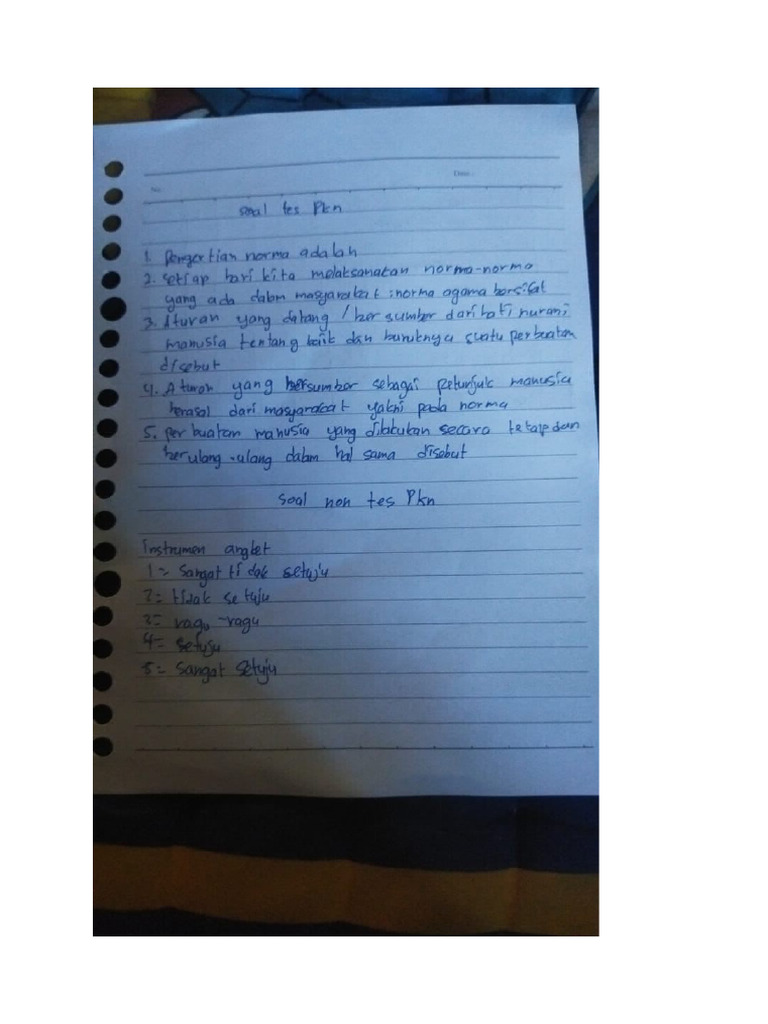 No:
Date:
soal tes Pkn
1. Pengertian norma adalah
2. Setiap hari kita melaksanakan norma-norma
yang ada dalam masyarakat : norma agama bersifat
3. Aturan yang datang / bersumber dari hati nurani
manusia tentang baik dan buruknya suatu perbuatan
disebut
4. Aturan yang bersumber sebagai petunjuk manusia
berasal dari masyarakat yakni pada norma
5. Perbuatan manusia yang dilakukan secara tetap dan
berulang-ulang dalam hal sama disebut
soal non tes Pkn
instrumen angket
1 = Sangat tidak setuju
2 = tidak setuju
3 = ragu-ragu
4 = setuju
5 = Sangat setuju